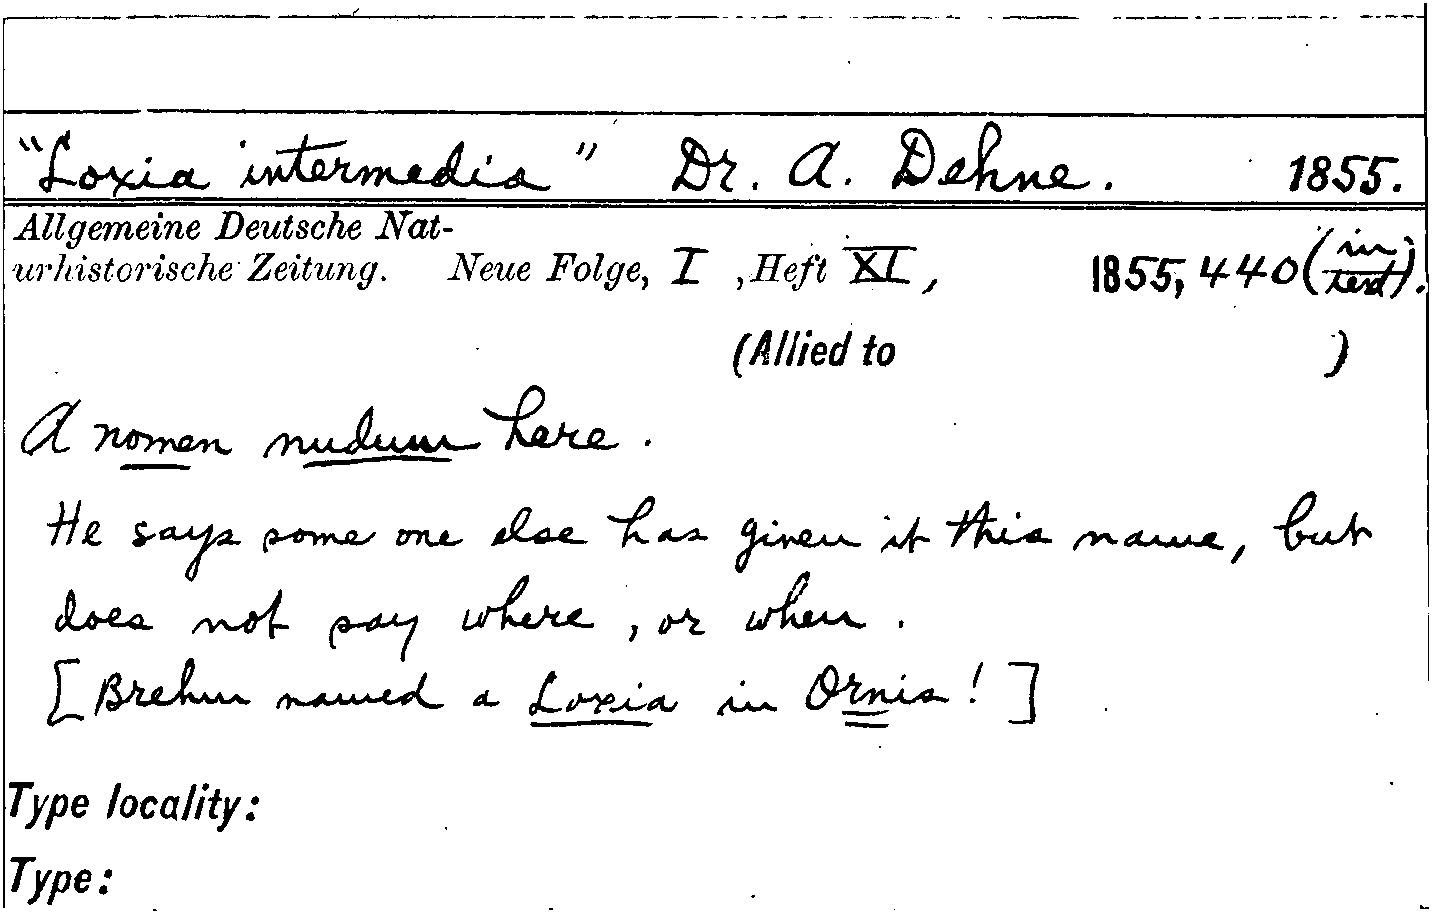 "Loxia intermedia" Dr. A. Dehne. 1855.
Allgemeine Deutsche Nat-
urhistorische Zeitung. Neue Folge, I, Heft XI, 1855, 440 (in text).
(Allied to )
A nomen nudum here.
He says some one else has given it this name, but
does not say where, or when.
[Brehm named a Loxia in Ornis!]
Type locality:
Type: